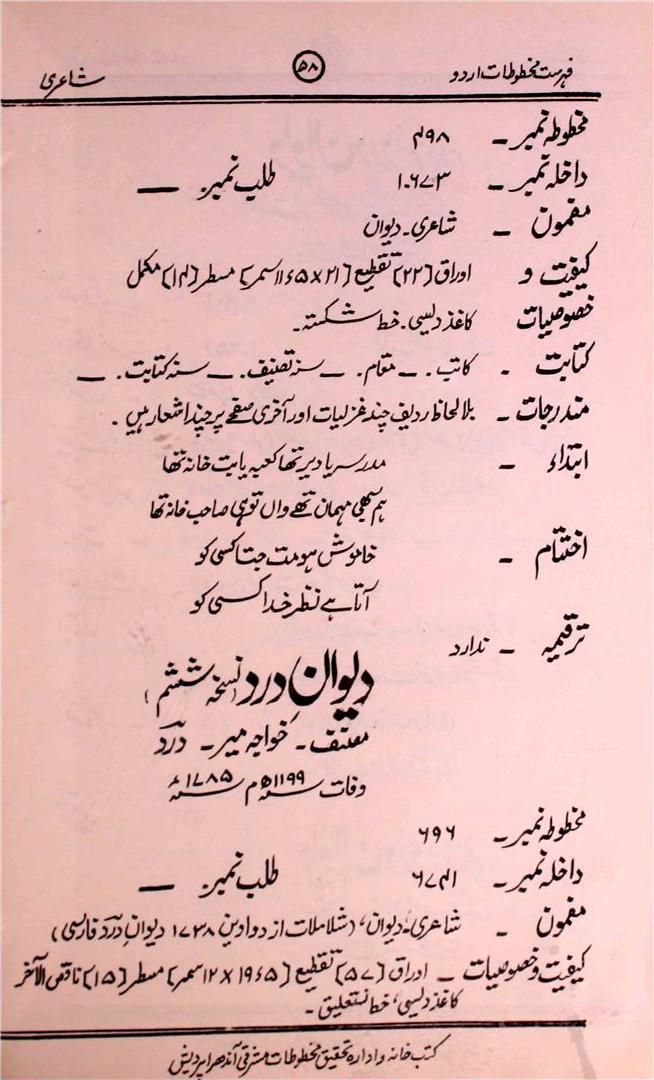 فہرست مخطوطات اردو ۵۸ شاعری
مخطوطہ نمبر ۔ ۴۹۸
داخلہ نمبر ۔ ۱۰۶۷۳ طلب نمبر ۔ —
مضمون ۔ شاعری ۔ دیوان
کیفیت و اوراق (۲۲) تقطیع (۲۱ × ۱۱٫۵ سمر) مسطر (۱۴) مکمل
خصوصیات کاغذ دیسی ۔ خط شکستہ ۔
کتابت ۔ کاتب ۔ — مقام ۔ — سنہ تصنیف ۔ — سنہ کتابت ۔ —
مندرجات ۔ بلا لحاظ ردیف چند غزلیات اور آخری صفحے پر چند اشعار ہیں ۔
ابتداء ۔ مدرسہ یا دیر تھا کعبہ یا بت خانہ تھا
ہم سبھی مہمان تھے واں تو ہی صاحب خانہ تھا
اختتام ۔ خاموش ہو مت جتا کسی کو
آتا ہے نظر خدا کسی کو
ترقیمہ ۔ ندارد
دیوان درد (نسخہ ششم)
مصنف ۔ خواجہ میر ۔ درد
وفات سنہ ۱۱۹۹ھ م سنہ ۱۷۸۵ء
مخطوطہ نمبر ۔ ۶۹۶
داخلہ نمبر ۔ ۶۷۴۱ طلب نمبر ۔ —
مضمون ۔ شاعری، دیوان، (شلاملات از دواوین ۱۷۳۸ دیوان درد فارسی)
کیفیت و خصوصیات ۔ اوراق (۵۷) تقطیع (۱۹٫۵ × ۱۲ سمر) مسطر (۱۵) ناقص الآخر
کاغذ دیسی، خط نستعلیق ۔
کتب خانہ و ادارہ تحقیق مخطوطات مشرقی آندھرا پردیش